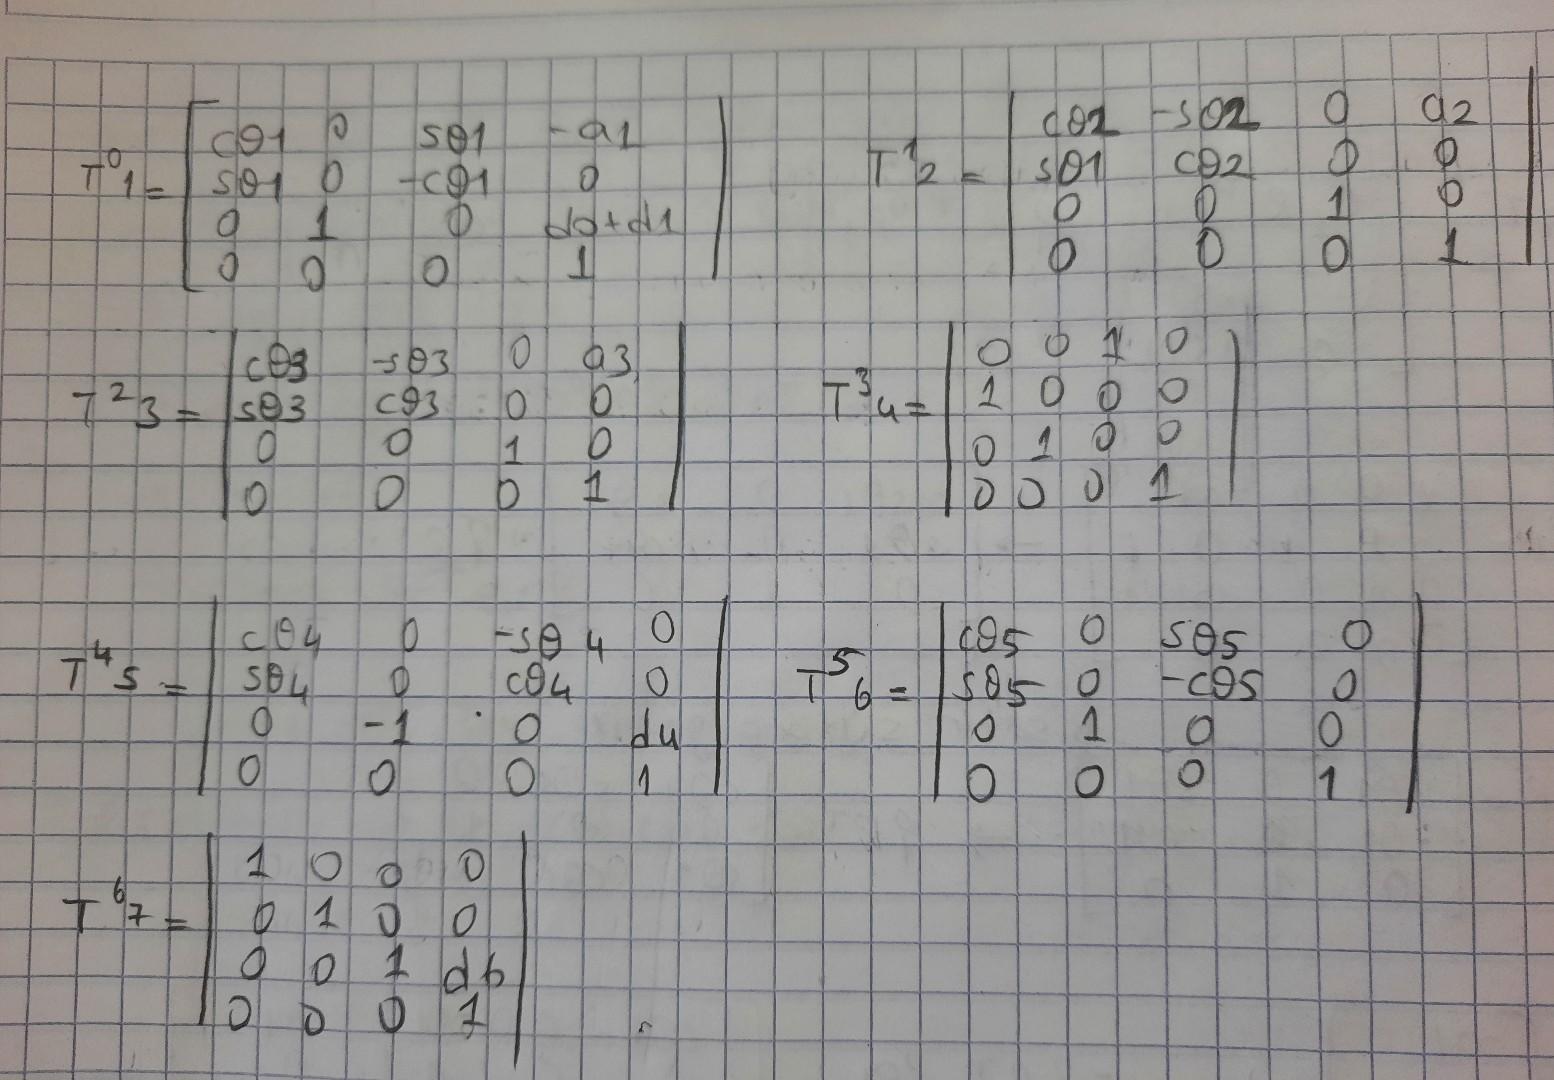 T⁰1 = [ cθ1 0 sθ1 -a1
sθ1 0 -cθ1 0
0 1 0 d0+d1
0 0 0 1 |
T¹2 = | cθ2 -sθ2 0 a2
sθ1 cθ2 0 0
0 0 1 0
0 0 0 1 |
T²3 = | cθ3 -sθ3 0 a3
sθ3 cθ3 0 0
0 0 1 0
0 0 0 1 |
T³4 = | 0 0 1 0
1 0 0 0
0 1 0 0
0 0 0 1 |
T⁴5 = | cθ4 0 -sθ4 0
sθ4 0 cθ4 0
0 -1 0 d4
0 0 0 1 |
T⁵6 = | cθ5 0 sθ5 0
sθ5 0 -cθ5 0
0 1 0 0
0 0 0 1 |
T⁶7 = | 1 0 0 0
0 1 0 0
0 0 1 d6
0 0 0 1 |